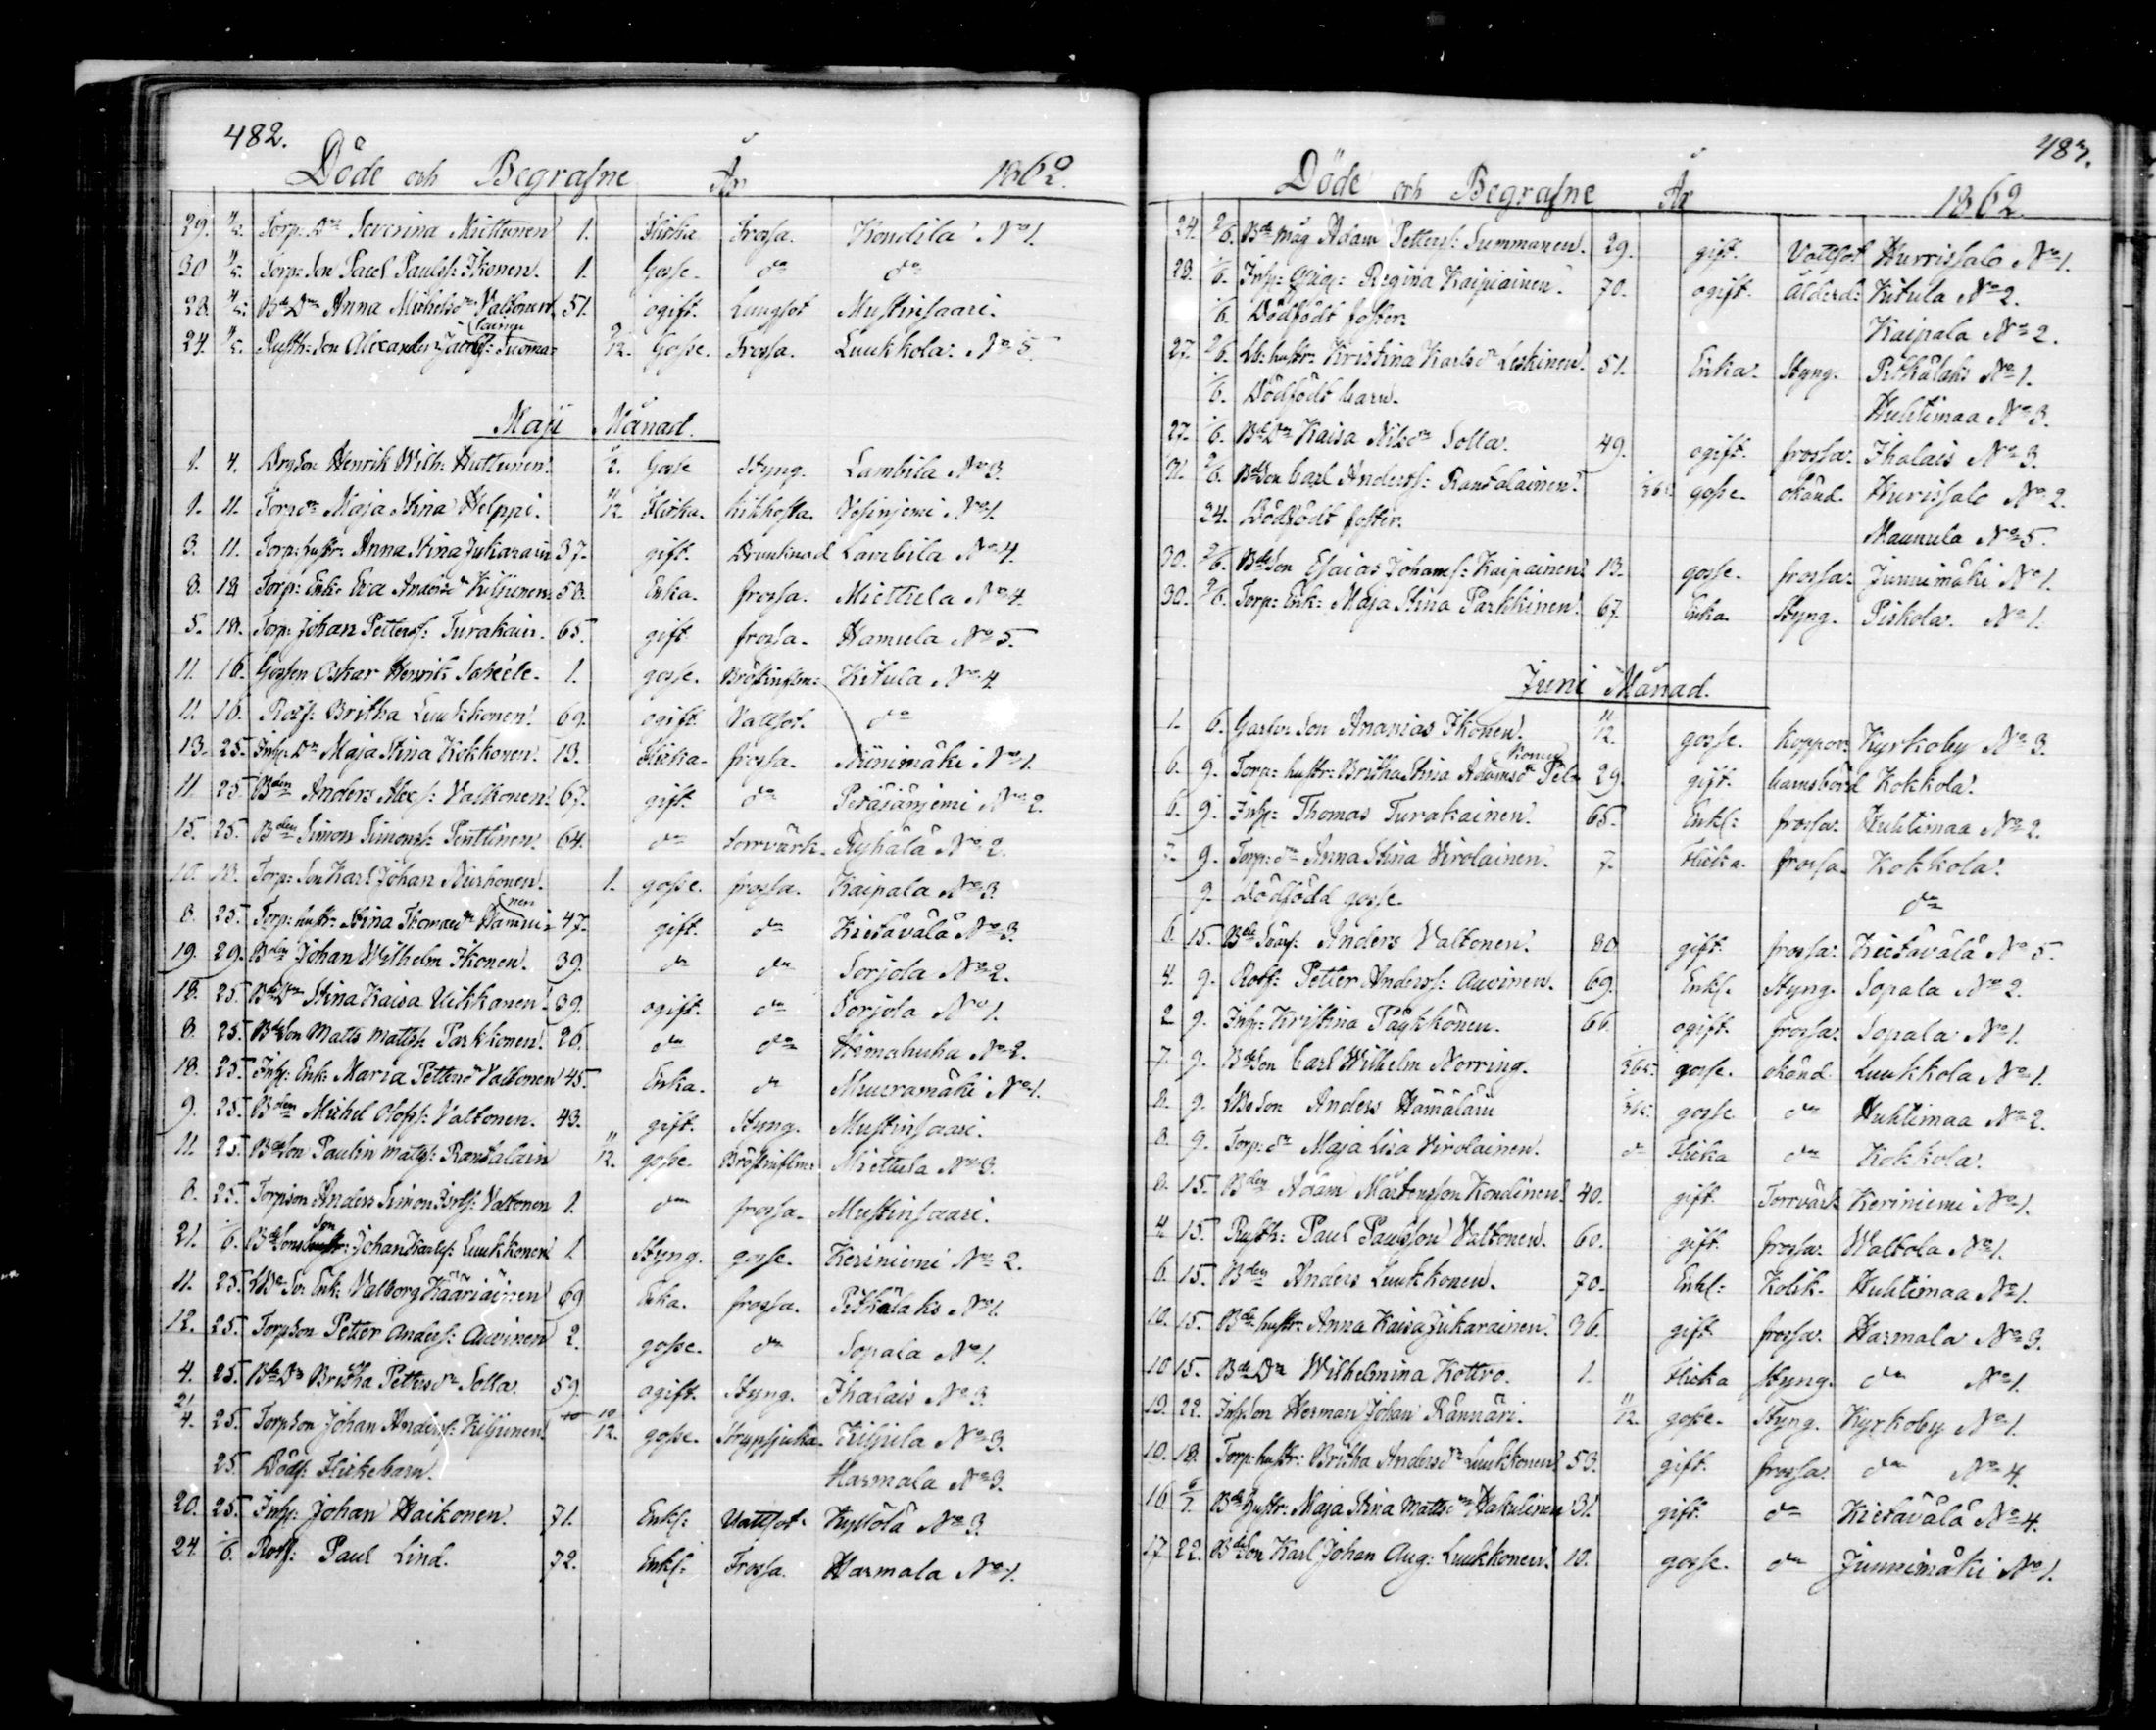 482.
Döde och Begrafne År 1862.
29. 4/5. Torp: Dr Severina Miettunen 1. Flicka Frossa. Kondila No 1.
30 4/5. Torp: Son Paul Paulss: Ikonen. 1. Gosse. do do
28. 4/5. Bde Dr Anna Michelsdr Valtonen 51. ogift. Lungsot Mustinsaari.
24. 4/5. Rusth: Son Alexander Jacobss: Tuoma= lainen 9/12. Gosse. Frossa. Luukkola No 5.
Maji Månad.
1. 4. Drg Son Henrik Wilh: Huttunen. 1/2. Gosse Styng. Lambila No 3.
1. 11. Torp dr Maja Stina Helppi. 11/12. Flicka. kikhosta. Vesiniemi No 1.
3. 11. Torp: hustr: Anna Stina Jukarain 37. gift. Drunknad Lambila No 4.
8. 18 Torp: Enk: Eva Andersdr Kiljunen 58. Enka. frossa. Miettula No 4.
5. 18. Torp: Johan Petterss: Turakain. 65. gift frossa. Hamula No 5.
11. 16. Gossen Oskar Henrik Saheéle. 1. gosse. Bröstinflm: Kitula No 4.
11. 16. Rotf: Britha Luukkonen. 69. ogift. Vattsot. do
13. 25. Inh: Dr Maja Stina Kokkonen. 13. Flicka. frossa. Niinimäki No 1.
11. 25. Bden Anders Alexs: Valkonen. 67. gift. do Peräsänjemi No 2.
15. 25. Bden Simon Simonss: Penttinen. 64. do torrvärk. Ryhälä No 2.
10. 18. Torp: Son Karl Johan Nurhonen. 1. gosse. frossa. Kaipala No 3.
8. 25. Torp: hustr: Stina Thomasdr Hanni= nen 47. gift. do Kietävälä No 3.
19. 29. Bden Johan Wilhelm Ikonen. 39. do do Sorjola No 2.
18. 25. Bde Dr Stina Kaisa Ukkanen. 39. ogift. do Sorjola No 1.
8. 25. Bde Son Matts Mattss: Parkkonen. 26. do do Himahuha No 2.
18. 25. Inh: Enk: Maria Pettersdr Valtonen 45. Enka. do Muuramäki No 1.
9. 25. Bden Michel Olofss: Valtonen. 43. gift. Styng. Mustinsaari.
11. 25. Bde Son Paulin Mattss: Rantalain 11/12. gosse. Bröstinflm: Miettula No 3.
8. 25. Torpson Anders Simon Valtonen 1. do frossa. Mustinsaari.
21. 1/6. Bde Sons Son Johan Karlss: Luukkonen 1. Styng. gosse. Keriniemi No 2.
11. 25. Enk: Valborg Kääriäinen 69 Enka. frossa. Pitkälaks No 1.
12. 25. Torpson Petter Anderss: Auvinen 2. gosse. do Sopala No 1.
4. 25. Bde Dr Britha Pettersdr Solla. 59. ogift. Styng. Ihalais No 3.
21/4. 25. Torpson Johan Anderss: Kiljunen. 10/12. gosse. Strypsjuka. Kiljula No 3.
25. Dödf: Flickebarn. Harmala No 3.
20. 25. Inh: Johan Haikonen. 71. Enkl: Vattsot. Kyllölä No 3.
24. 1/6. Rotf: Paul Lind. 72. Enkl: Frossa. Harmala No 1.
483.
Döde och Begrafne År 1862.
24. 2/6. Bde måg Adam Petterss: Summanen. 29. gift. Vattsot Hurrissalo No 1.
28. 1/6. Inh: Regina Kaipiainen. 70. ogift. Ålderd: Kitula No 2.
1/6. Dödfödt foster. Kaipala No 2.
27. 2/6. Lb: hustr: Kristina Karlsdr Leskinen. 51. Enka. Styng. Pitkälaks No 1.
1/6. Dödfödt barn. Huhtimaa No 3.
27. 1/6. Bde Dr Kaisa Nilsdr Solla. 49. ogift. frossa. Ihalais No 3.
31. 2/6. Bde Son Carl Anderss: Rantalainen. gosse. okänd. Hurissalo No 2.
24. Dödfödt foster. Maunula No 5.
30. 2/6. Bde Son Esaias Johanss: Kaipainen. 13. gosse. frossa. Junnimäki No 1.
30. 2/6. Torp: Enk: Maja Stina Parkkinen. 67. Enka. Styng. Piskola. No 1.
Juni Månad.
1. 6. Garfv: Son Ananias Ikonen. 11/12. gosse. koppor. Kyrkoby No 3.
6. 9. Torp: hustr: Britha Stina Adamsdr Pel= konen 29. gift. barnsbörd Kokkola.
6. 9. Inh: Thomas Turakainen. 65. Enkl: frossa. Huhtimaa No 2.
7. 9. Torp: dr Anna Stina Virolainen. 7. Flicka. frossa. Kokkola.
9. Dödfödd gosse. do
6. 15. Bde Anders Valtonen. 80. gift. frossa. Kietävälä No 5.
4. 9. Rotf: Petter Anderss: Auvinen. 69. Enkl. Styng. Sopala No 2.
2 9. Inh: Kristina Päykkönen. 66. ogift. frossa. Sopala No 1.
7. 9. Bde Son Carl Wilhelm Norring. gosse. okänd. Luukkola No 1.
8. 9. Son Anders Hämäläin gosse do Huhtimaa No 2.
8. 9. Torp: dr Maja Lisa Virolainen. do Flicka do Kokkola.
8. 15. Bden Adam Mårtensson Kondinen. 40. gift. Torrvärk Keriniemi No 1.
4 15. Rusth: Paul Paulsson Valtonen. 60. gift. frossa. Waltola No 1.
6. 15. Bden Anders Luukkonen. 70. Enkl: Kolik. Huhtimaa No 1.
10. 15. Bde hustr: Anna Kaisa Jukarainen. 36. gift. frossa. Harmala No 3.
10 15. Bde Dr Wilhelmina Kottro. 1. Flicka Styng. do No 1.
19. 22. Inh Son Herman Johan Rännäri. 11/12. gosse. Styng. Kyrkoby No 1.
10. 18. Torp: hustr: Britha Andersdr Luukkonen. 53. gift. frossa. do No 4.
16. 6/7. Bde hustr: Maja Stina Mattsdr Hakulinen 31. gift. do Kietävälä No 4.
17. 22. Bde Son Karl Johan Aug: Luukkonen. 10. gosse. do Junnimäki No 1.